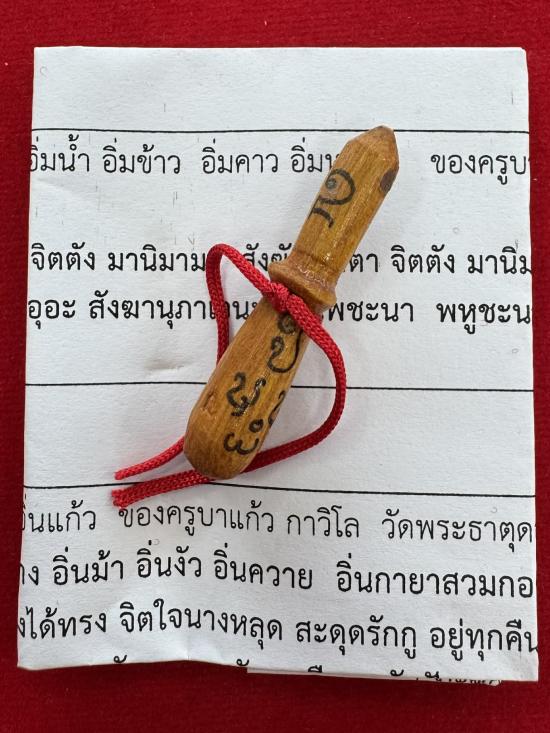 อิ่มน้ำ อิ่มข้าว อิ่มคาว ของครูบา
จิตตัง มานิมาม จิตตัง มานิม
อุอะ สังฆานุภา พชะนา พหูชะน
ของครูบาแก้ว กาวิโล วัดพระธาตุด
อิ่นม้า อิ่นงัว อิ่นควาย อิ่นกายาสวมกอ
งได้ทรง จิตใจนางหลุด สะดุดรักกู อยู่ทุกคืน